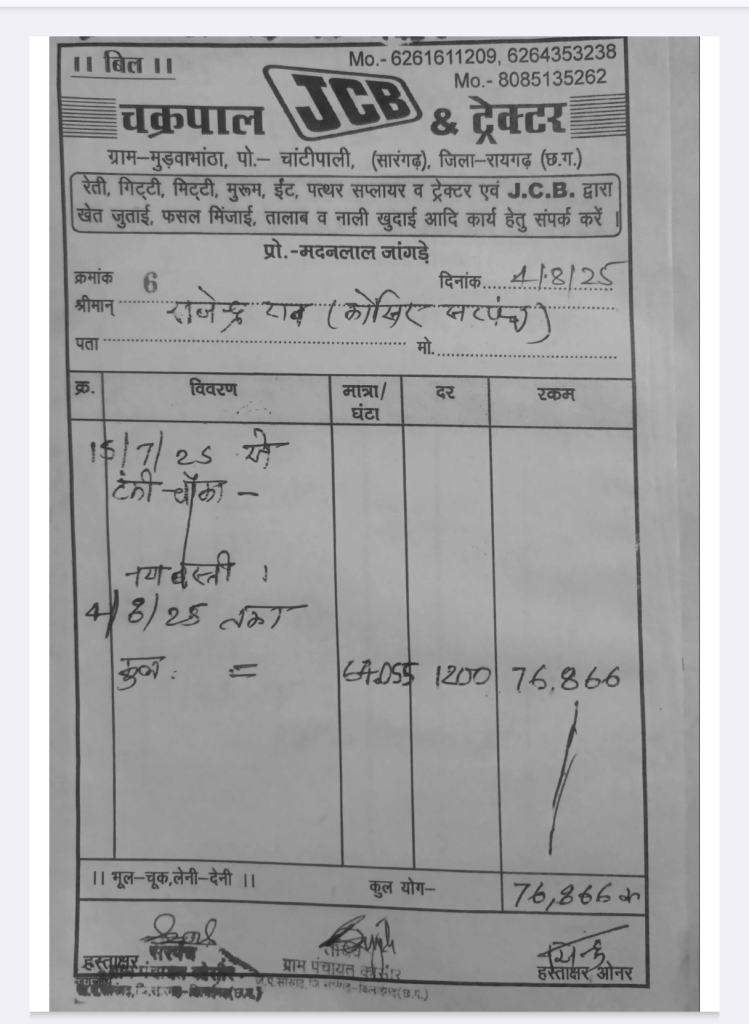 ॥ बिल ॥
Mo.- 6261611209, 6264353238
Mo.- 8085135262
चक्रपाल JCB & ट्रेक्टर
ग्राम-मुड़वाभांठा, पो.- चांटीपाली, (सारंगढ़), जिला-रायगढ़ (छ.ग.)
रेती, गिट्टी, मिट्टी, मुरूम, ईंट, पत्थर सप्लायर व ट्रेक्टर एवं J.C.B. द्वारा
खेत जुताई, फसल मिंजाई, तालाब व नाली खुदाई आदि कार्य हेतु संपर्क करें ।
प्रो.-मदनलाल जांगड़े
क्रमांक 6 दिनांक 4/8/25
श्रीमान् राजेन्द्र राव (कोसिर सरपंच)
पता मो.
क्र. विवरण मात्रा/घंटा दर रकम
15/7/25 से
टंकी चौंक -
नया बस्ती ।
4/8/25 तक
कुल = 64.055 1200 76,866
॥ भूल-चूक,लेनी-देनी ॥ कुल योग- 76,866
हस्ताक्षर सरपंच
ग्राम पंचायत कोसीर
हस्ताक्षर ओनर